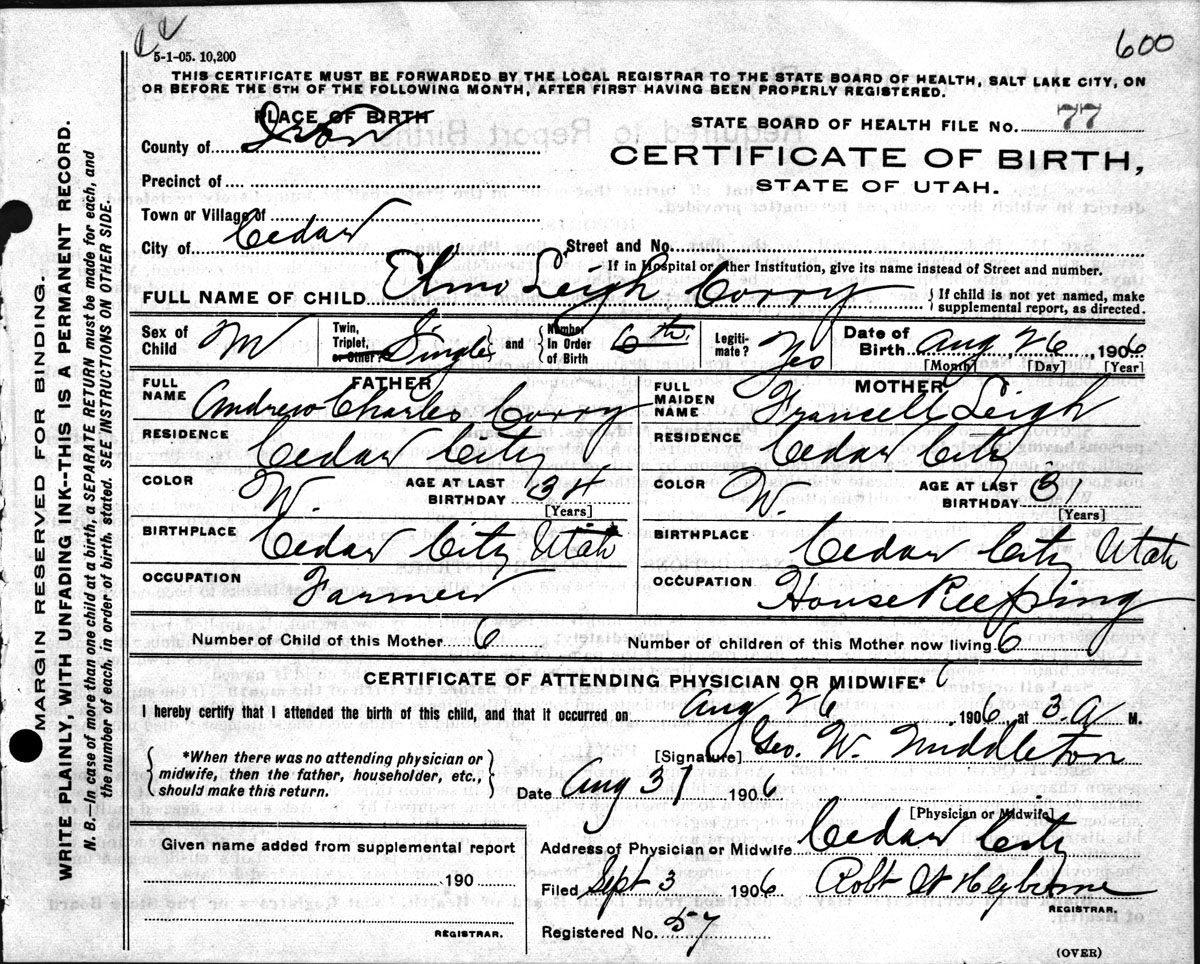 600
5-1-05. 10,200
THIS CERTIFICATE MUST BE FORWARDED BY THE LOCAL REGISTRAR TO THE STATE BOARD OF HEALTH, SALT LAKE CITY, ON
OR BEFORE THE 5TH OF THE FOLLOWING MONTH, AFTER FIRST HAVING BEEN PROPERLY REGISTERED.
PLACE OF BIRTH
STATE BOARD OF HEALTH FILE No. 77
County of Iron
CERTIFICATE OF BIRTH,
Precinct of
STATE OF UTAH.
Town or Village of
City of Cedar
Street and No.
If in Hospital or other Institution, give its name instead of Street and number.
FULL NAME OF CHILD Elmo Leigh Corry { If child is not yet named, make supplemental report, as directed.
Sex of Child M Twin, Triplet, or Other? Single and Number In Order of Birth 6th Legiti-mate? Yes Date of Birth Aug 26, 1906
[Month] [Day] [Year]
FATHER
MOTHER
FULL NAME Andrew Charles Corry
FULL MAIDEN NAME Francell Leigh
RESIDENCE Cedar City
RESIDENCE Cedar City
COLOR W. AGE AT LAST BIRTHDAY 34 [Years]
COLOR W. AGE AT LAST BIRTHDAY 31 [Years]
BIRTHPLACE Cedar City Utah
BIRTHPLACE Cedar City Utah
OCCUPATION Farmer
OCCUPATION House Keeping
Number of Child of this Mother 6
Number of children of this Mother now living 6
CERTIFICATE OF ATTENDING PHYSICIAN OR MIDWIFE*
I hereby certify that I attended the birth of this child, and that it occurred on Aug 26, 1906, at 3. A M.
*When there was no attending physician or
midwife, then the father, householder, etc.,
should make this return.
[Signature] Geo. W. Middleton
Date Aug 31 1906
[Physician or Midwife]
Given name added from supplemental report
190
REGISTRAR.
Address of Physician or Midwife Cedar City
Filed Sept 3 1906 Robt W Heyborne
REGISTRAR.
Registered No. 57
(OVER)
MARGIN RESERVED FOR BINDING.
WRITE PLAINLY, WITH UNFADING INK--THIS IS A PERMANENT RECORD.
N. B.--In case of more than one child at a birth, a SEPARATE RETURN must be made for each, and
the number of each, in order of birth, stated. SEE INSTRUCTIONS ON OTHER SIDE.